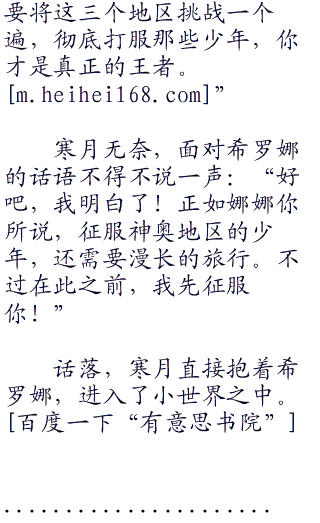 要将这三个地区挑战一个
遍，彻底打服那些少年，你
才是真正的王者。
[m.heihei168.com]”
寒月无奈，面对希罗娜
的话语不得不说一声：“好
吧，我明白了！正如娜娜你
所说，征服神奥地区的少
年，还需要漫长的旅行。不
过在此之前，我先征服
你！”
话落，寒月直接抱着希
罗娜，进入了小世界之中。
[百度一下“有意思书院”]
......................